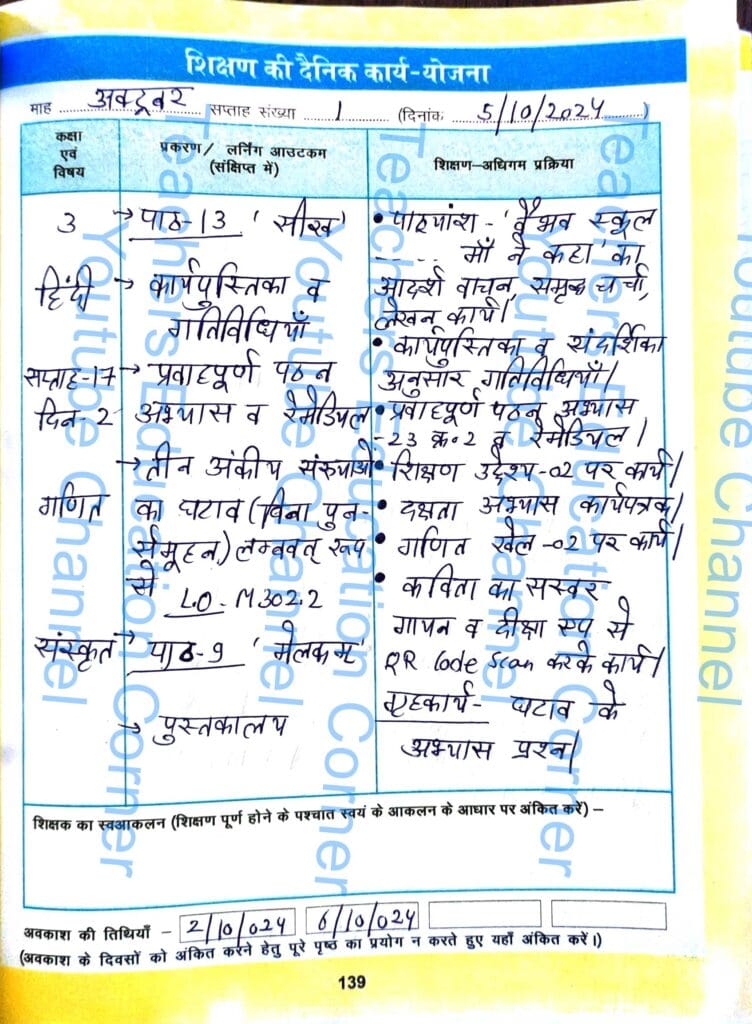 शिक्षण की दैनिक कार्य-योजना
माह अक्टूबर सप्ताह संख्या 1 (दिनांक 5/10/2024)
कक्षा
एवं
विषय
प्रकरण/ लर्निंग आउटकम
(संक्षिप्त में)
शिक्षण-अधिगम प्रक्रिया
3
हिंदी
सप्ताह-17
दिन-2
गणित
संस्कृत
→ पाठ-13 'सीख'
→ कार्यपुस्तिका व
गतिविधियाँ
→ प्रवाहपूर्ण पठन
अभ्यास व रेमेडियल
→ तीन अंकीय संख्याओं
का घटाव (बिना पुन-
र्समूहन) लम्बवत् रूप
से
L.O - M302.2
→ पाठ-9 'मेलकम्'
→ पुस्तकालय
• पाठ्यांश - 'वैभव स्कूल
---- माँ ने कहा' का
आदर्श वाचन, समृद्ध चर्चा,
लेखन कार्य।
• कार्यपुस्तिका व संदर्शिका
अनुसार गतिविधियाँ।
• प्रवाहपूर्ण पठन अभ्यास
-23 क्र.2 व रेमेडियल।
• शिक्षण उद्देश्य-02 पर कार्य।
• दक्षता अभ्यास कार्यपत्रक।
• गणित खेल -02 पर कार्य।
• कविता का सस्वर
गायन व दीक्षा एप से
QR Code Scan करके कार्य।
गृहकार्य- घटाव के
अभ्यास प्रश्न।
शिक्षक का स्वआकलन (शिक्षण पूर्ण होने के पश्चात स्वयं के आकलन के आधार पर अंकित करें) –
अवकाश की तिथियाँ – 2/10/024 6/10/024
(अवकाश के दिवसों को अंकित करने हेतु पूरे पृष्ठ का प्रयोग न करते हुए यहाँ अंकित करें।)
139
Teachers Education Corner
Youtube Channel
Teachers Education Corner
Youtube Channel
Teachers Education Corner
Youtube Channel